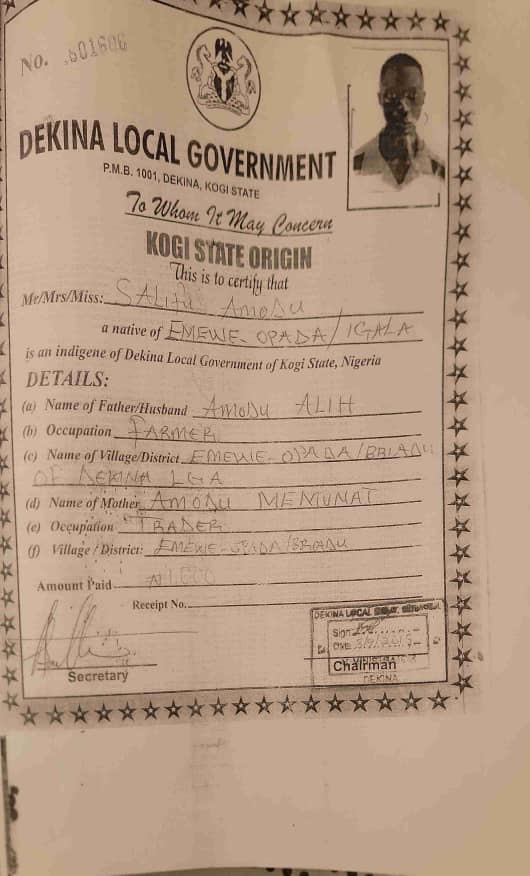 No. 501606
DEKINA LOCAL GOVERNMENT
P.M.B. 1001, DEKINA, KOGI STATE
To Whom It May Concern
KOGI STATE ORIGIN
This is to certify that
Mr/Mrs/Miss: SALIFU AMODU
a native of EMEWE-OPADA/IGALA
is an indigene of Dekina Local Government of Kogi State, Nigeria
DETAILS:
(a) Name of Father/Husband AMODU ALIH
(b) Occupation FARMER
(c) Name of Village/District EMEWE-OPADA/BRIADU
OF DEKINA LGA
(d) Name of Mother AMODU MEMUNAT
(e) Occupation TRADER
(f) Village / District: EMEWE-OPADA/BRIADU
Amount Paid
Receipt No.
Secretary
DEKINA LOCAL
Sign
Date
Chairman
DEKINA